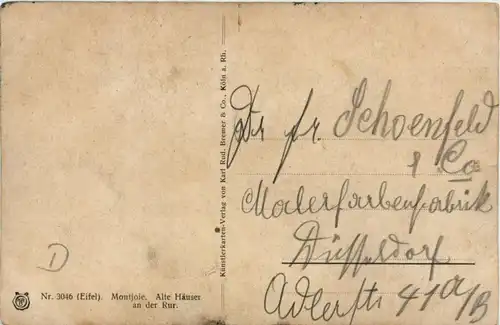 D
Nr. 3046 (Eifel). Montjoie. Alte Häuser
an der Rur.
Künstlerkarten-Verlag von Karl Rud. Bremer & Co., Köln a. Rh.
Dr fr. Schoenfeld
& Co
Malerfarbenfabrik
Düsseldorf
Adlerstr 41a/B